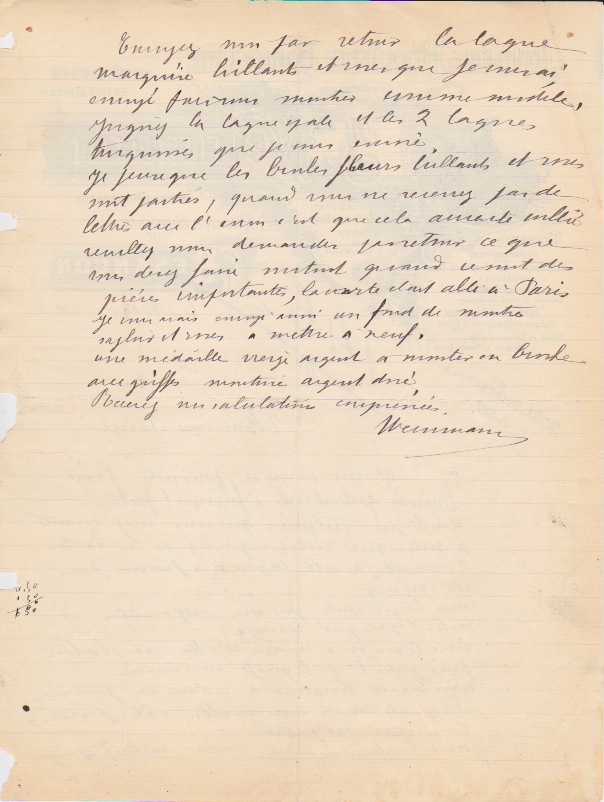 Envoyez moi par retour la bague
marquise brillants et roses que je vous ai
envoyé pour vous montrer comme modèle,
joignez la bague opale et les 2 bagues
turquoises que je vous envoie.
je pense que les boucles fleurs brillants et roses
sont parties, quand vous ne recevez pas de
lettre avec l'envoi c'est que cela
veuillez nous demander par retour ce que
vous devez faire surtout quand ce sont des
pièces importantes, étant allé à Paris
je vous avais envoyé aussi un fond de montre
saphir et roses a mettre a neuf.
une médaille vierge argent a monter en broche
avec griffes monture argent doré
Recevez mes salutations empressées.
Weinmann
0.50
1 50